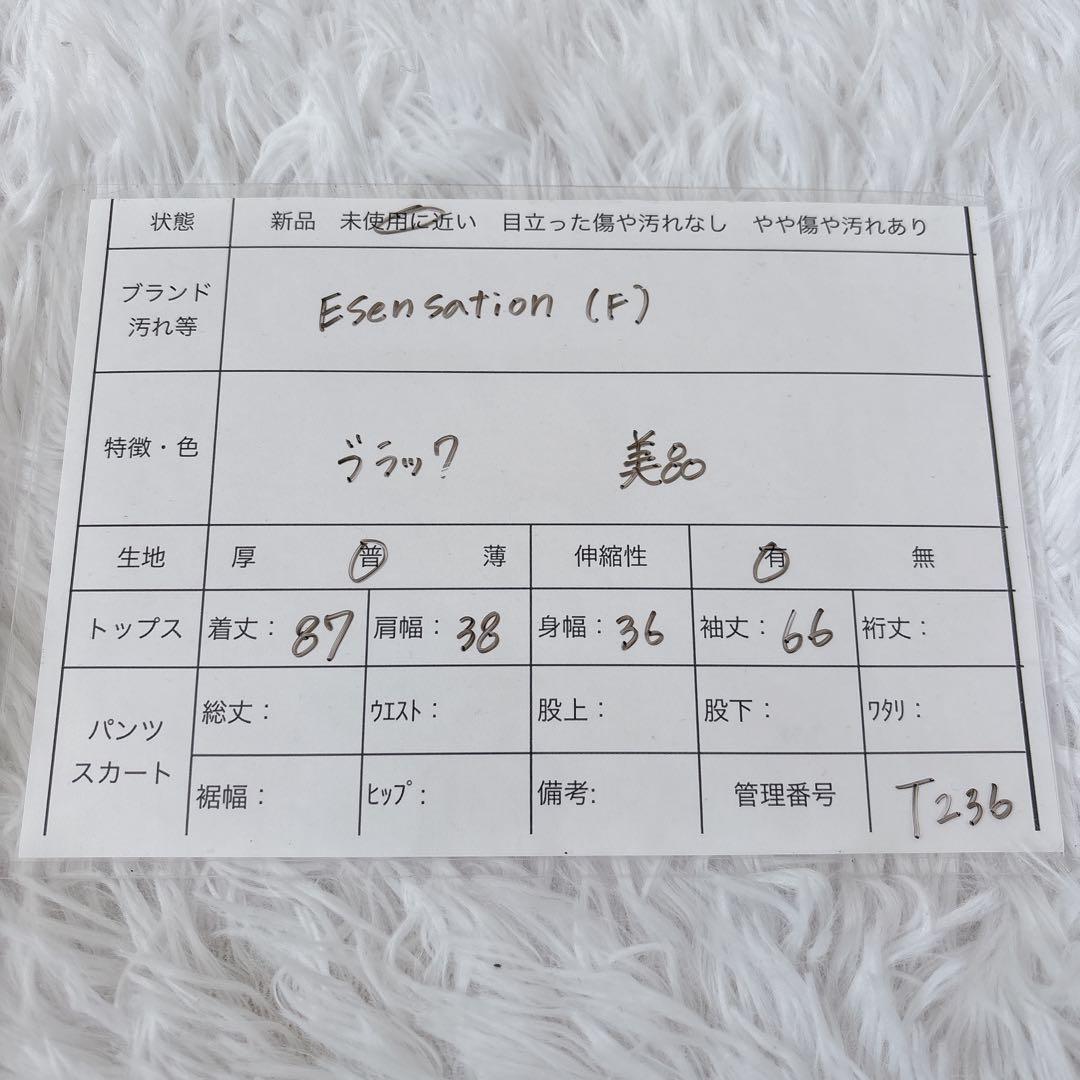 状態 新品 未使用に近い 目立った傷や汚れなし やや傷や汚れあり
ブランド
汚れ等
Esensation (F)
特徴・色 ブラック 美品
生地 厚 普 薄 伸縮性 有 無
トップス 着丈: 87 肩幅: 38 身幅: 36 袖丈: 66 裄丈:
パンツ
スカート
総丈: ｳｴｽﾄ: 股上: 股下: ﾜﾀﾘ:
裾幅: ﾋｯﾌﾟ: 備考: 管理番号 T236